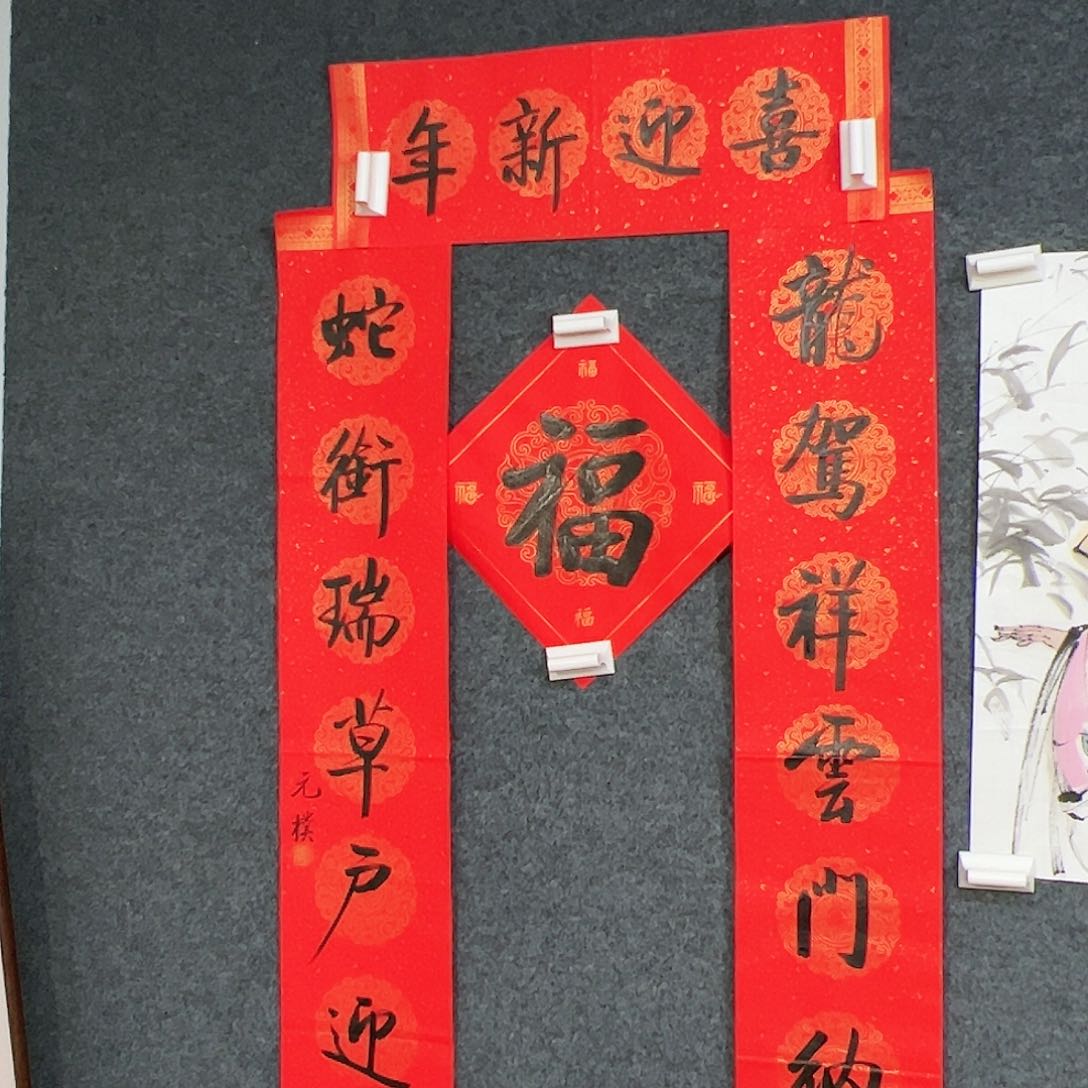 喜迎新年
龍駕祥雲门納
蛇銜瑞草户迎
元樸
福
福
福
福
福